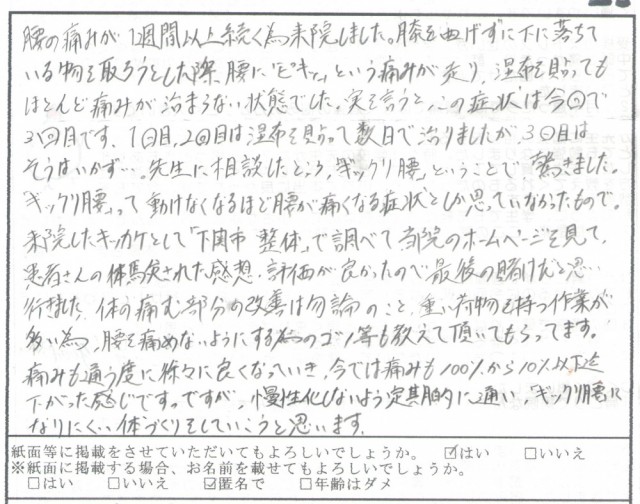 腰の痛みが1週間以上続く為来院しました。膝を曲げずに下に落ちて
いる物を取ろうとした際、腰に"ピキッ"という痛みが走り、湿布を貼っても
ほとんど痛みが治まらない状態でした。実を言うと、この症状は今回で
3回目です。1回目、2回目は湿布を貼って数日で治りましたが、3回目は
そうはいかず…。先生に相談したところ、"ギックリ腰"ということで驚きました。
"ギックリ腰"って動けなくなるほど腰が痛くなる症状としか思っていなかったもので。
来院したキッカケとして「下関市 整体」で調べて当院のホームページを見て、
患者さんの体験された感想・評価が良かったので最後の賭けだと思い
行きました。体の痛む部分の改善は勿論のこと、重い荷物を持つ作業が
多い為、腰を痛めないようにする為のコツ等も教えて頂いてもらってます。
痛みも通う度に徐々に良くなっていき、今では痛みも100%から10%以下迄
下がった感じです。ですが、慢性化しないよう定期的に通い、"ギックリ腰"に
なりにくい体づくりをしていこうと思います。
紙面等に掲載をさせていただいてもよろしいでしょうか。 ☑はい □いいえ
※紙面に掲載する場合、お名前を載せてもよろしいでしょうか。
□はい □いいえ ☑匿名で □年齢はダメ